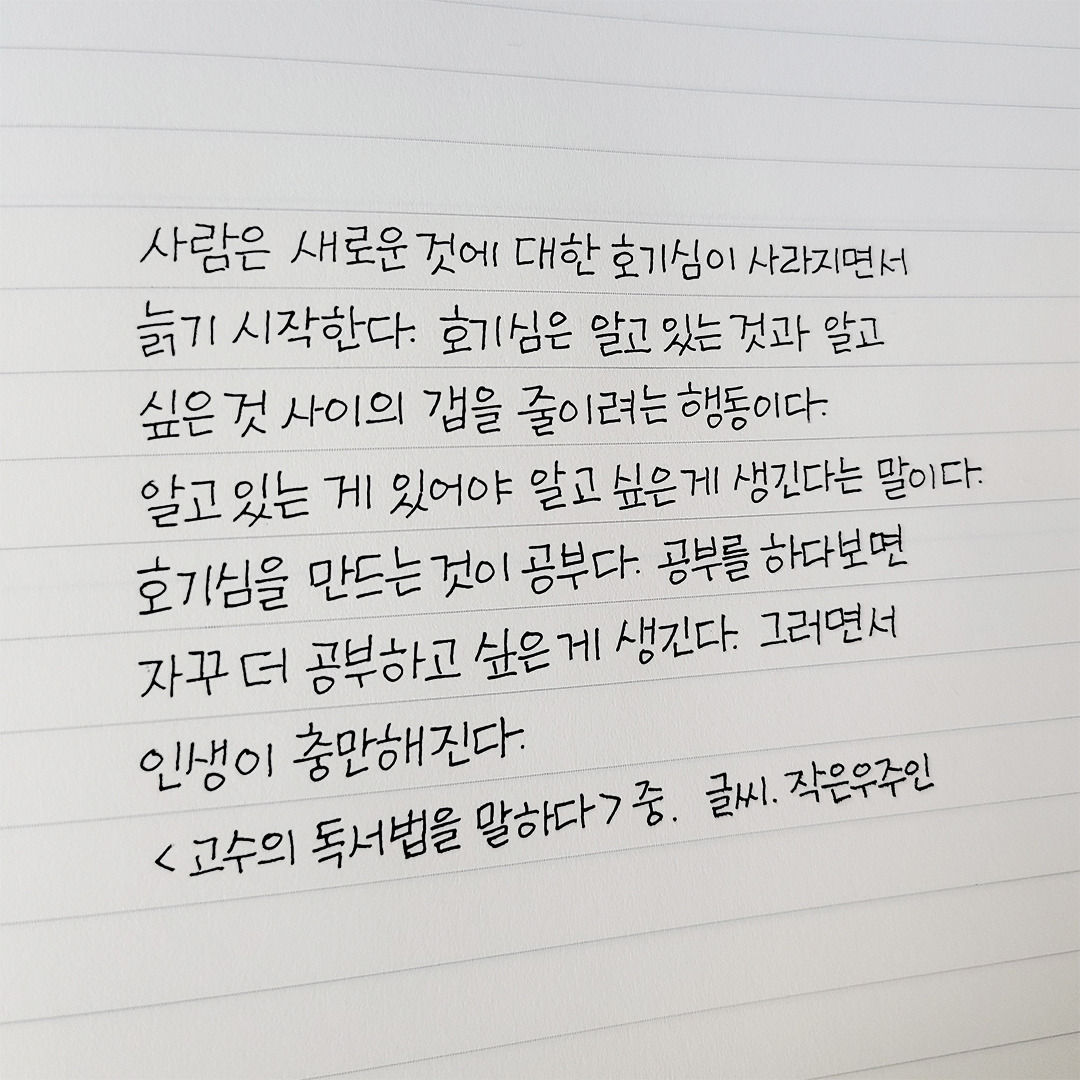 사람은 새로운 것에 대한 호기심이 사라지면서
늙기 시작한다. 호기심은 알고 있는 것과 알고
싶은 것 사이의 갭을 줄이려는 행동이다.
알고 있는 게 있어야 알고 싶은 게 생긴다는 말이다.
호기심을 만드는 것이 공부다. 공부를 하다보면
자꾸 더 공부하고 싶은 게 생긴다. 그러면서
인생이 충만해진다.
<고수의 독서법을 말하다> 중. 글씨. 작은우주인